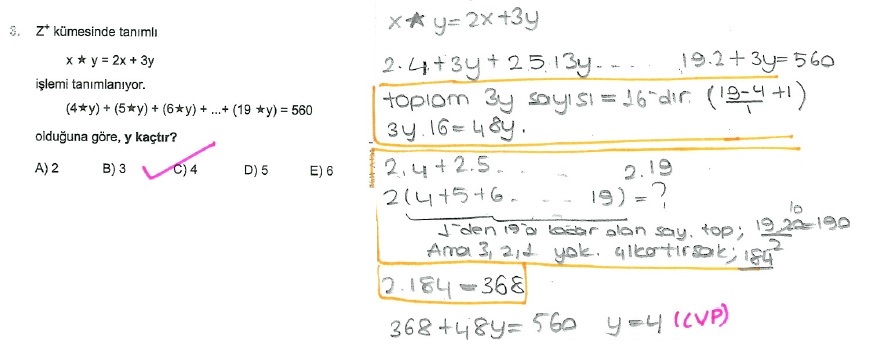 3. Z⁺ kümesinde tanımlı
x ★ y = 2x + 3y
işlemi tanımlanıyor.
(4★y) + (5★y) + (6★y) + ...+ (19 ★y) = 560
olduğuna göre, y kaçtır?
A) 2 B) 3 C) 4 D) 5 E) 6
x★ y=2x+3y
2.4+3y+25.13y.... 19.2+3y=560
toplam 3y sayısı=16-dır. (19-4/1 +1)
3y.16=48y.
2.4+2.5. .. .. 2.19
2(4+5+6. .. .. 19)=?
1'den 19'a kadar olan say. top; 19.20/2=190 10
Ama 3,2,1 yok. çıkartırsak; 184
2.184=368
368+48y=560 y=4 (CVP)